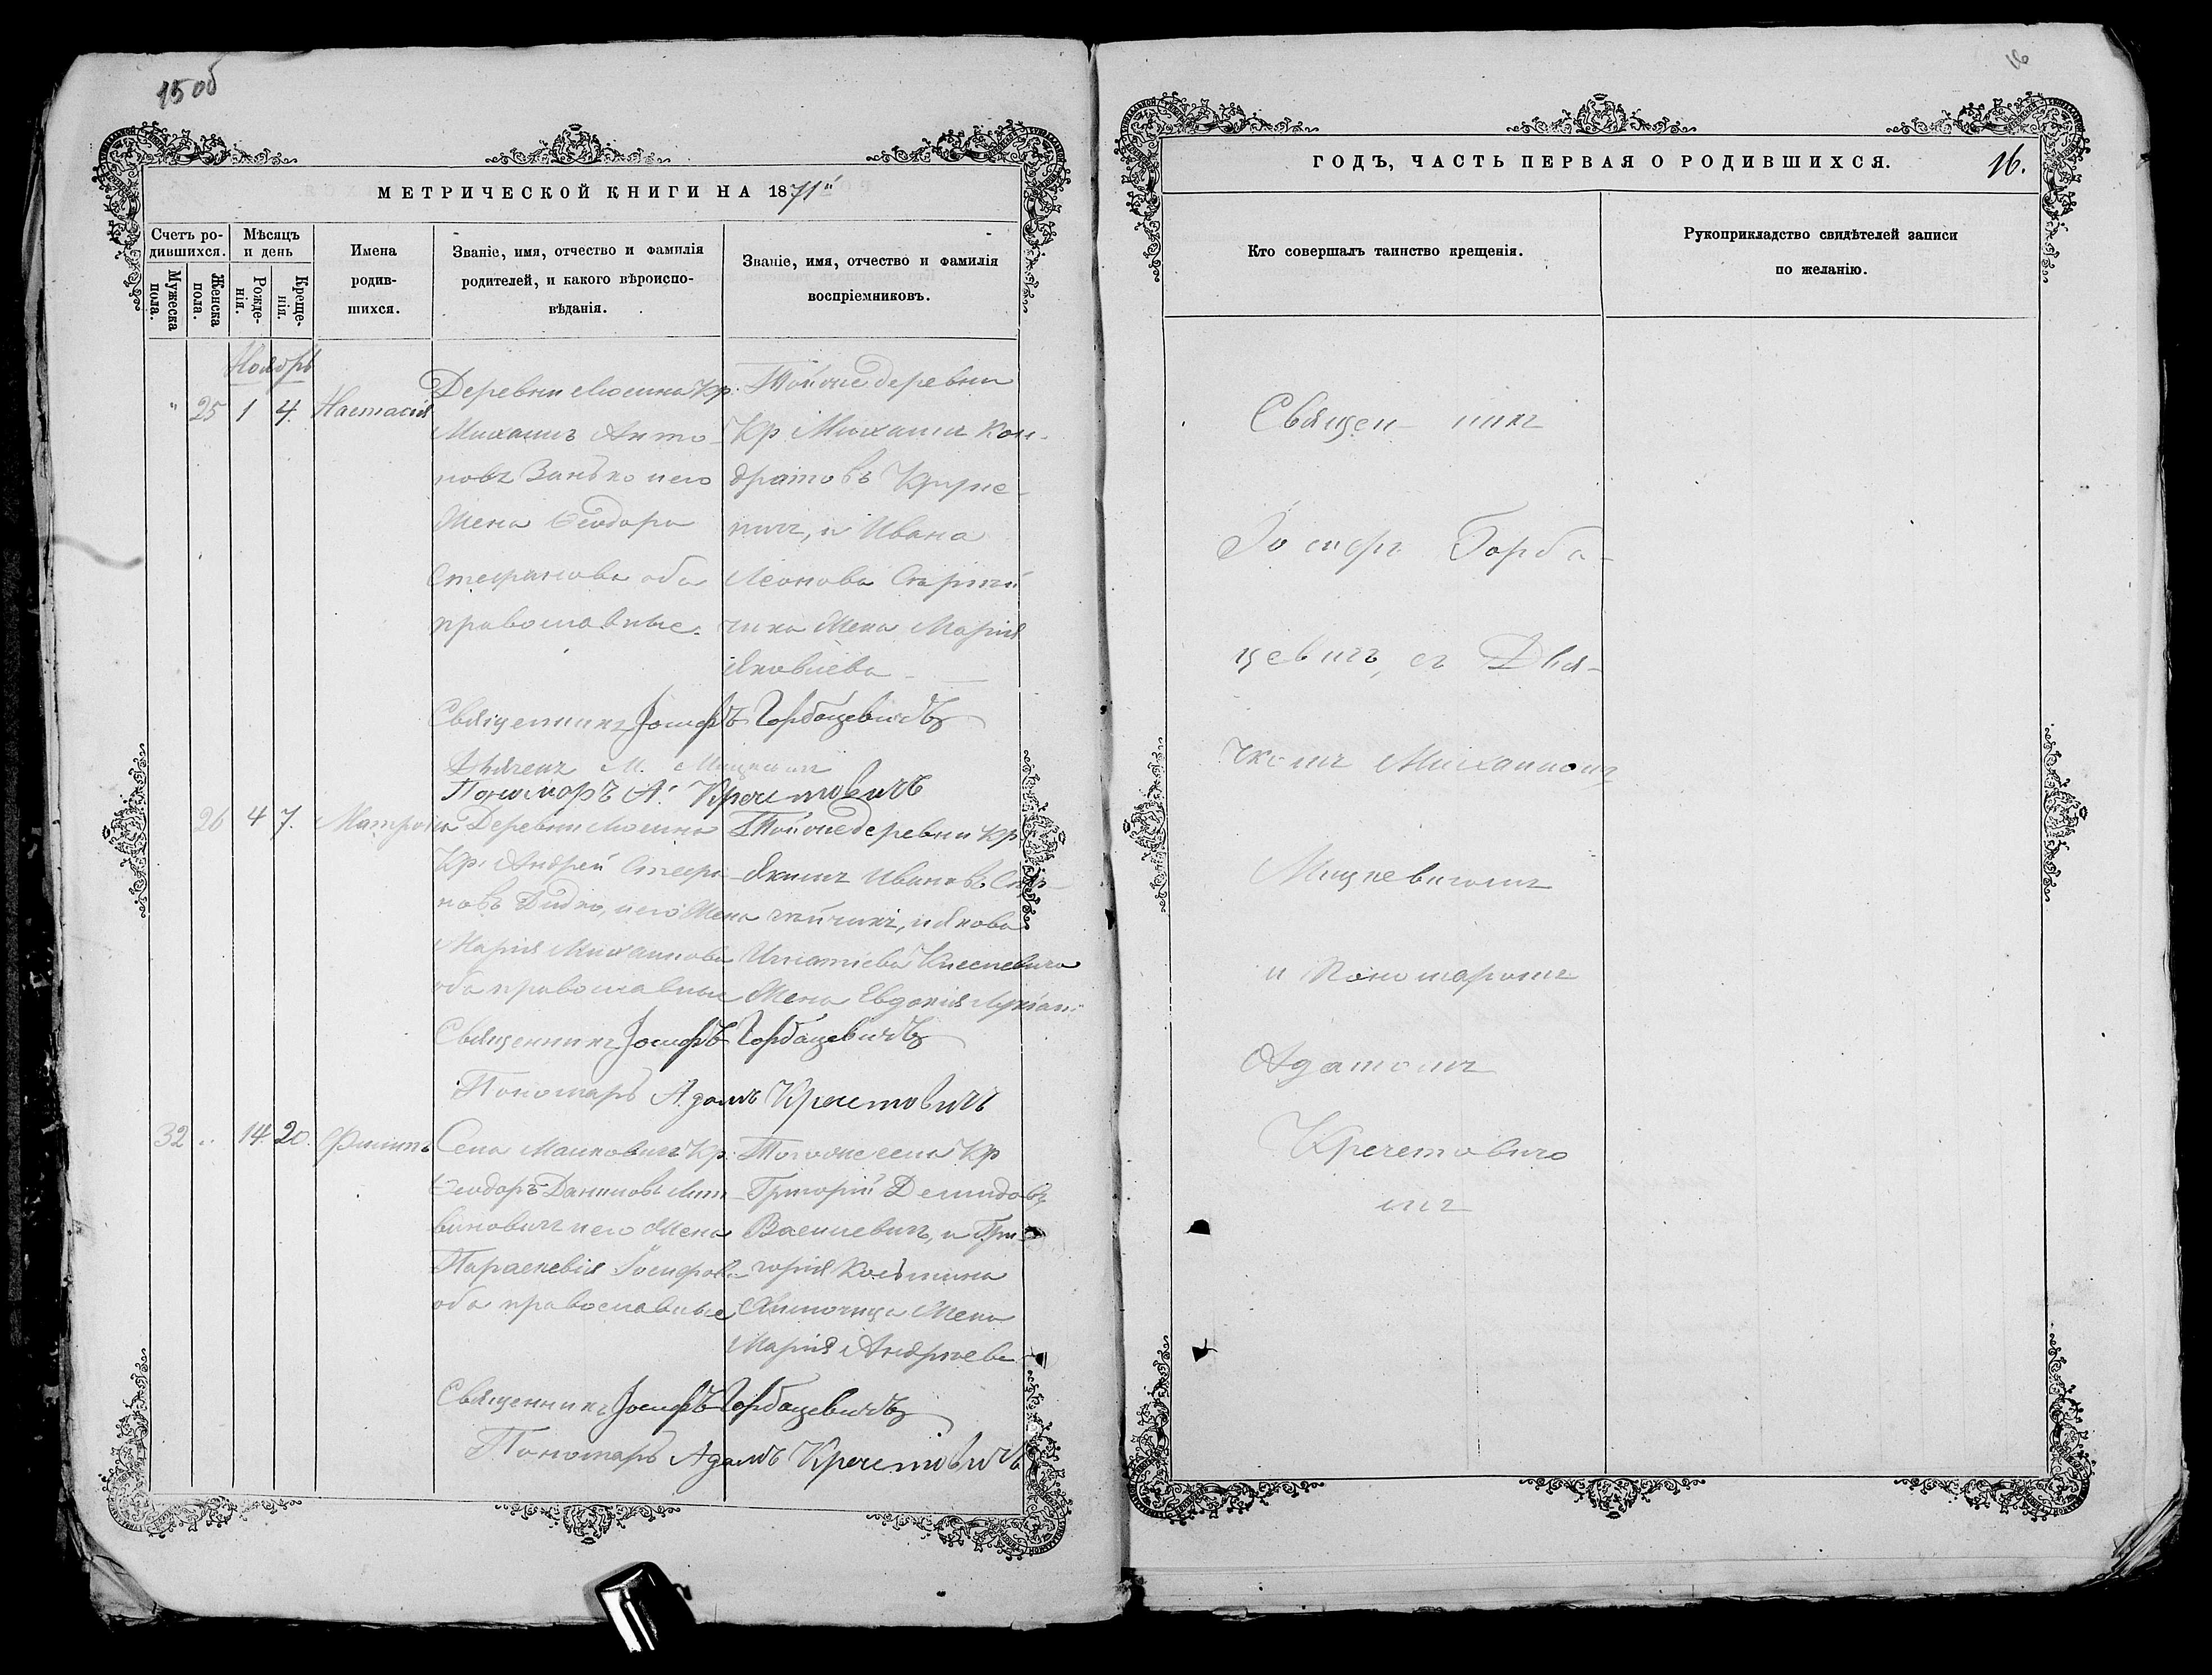 15 об
МЕТРИЧЕСКОЙ КНИГИ НА 1871й
Счетъ родившихся.
Мужеска пола.
Женска пола.
Мѣсяцъ и день
Рожденія.
Крещенія.
Имена родившихся.
Званіе, имя, отчество и фамилія
родителей, и какого вѣроиспо-
вѣданія.
Званіе, имя, отчество и фамилія
воспріемниковъ.
Ноябрь
" 25 1 4. Настасія
Деревни Люсина Кр.
Михаилъ Анто-
новъ Занько и его
жена Ѳеодора
Стефанова оба
православные.
Той же деревни
Кр. Михаилъ Кон-
дратовъ
и Ивана
Леонова
жена Марія
Яковлева
Священникъ Іосифъ Горбацевичъ
Дьячекъ М.
Пономарь А. Кречетовичъ
26 4 7. Матрона
Деревни Люсина
Кр. Андрей Стефа-
новъ Дидко, и его жена
Марія Михаилова
оба православные
Той же деревни Кр.
Якимъ Ивановъ
и Якова
Игнатіева
жена Евдокія
Священникъ Іосифъ Горбацевичъ
Пономарь Адамъ Кречетовичъ
32 " 14 20. Филипъ
Села Малковичъ Кр.
Ѳеодоръ Даниловъ Лит-
виновичъ и его жена
Параскевія Іосифова
оба православные
Того же села Кр
Григорій Демидовъ
Василевичъ, и Гри-
горія Козьмина
жена
Марія Андреева
Священникъ Іосифъ Горбацевичъ
Пономарь Адамъ Кречетовичъ
16
ГОДЪ, ЧАСТЬ ПЕРВАЯ О РОДИВШИХСЯ.
16.
Кто совершалъ таинство крещенія.
Рукоприкладство свидѣтелей записи
по желанію.
Священ- никъ
Іосифъ Горба-
цевичъ, съ Дья-
чкомъ Михаиломъ
Мицкевичомъ
и Пономаромъ
Адамомъ
Кречетовичо
мъ